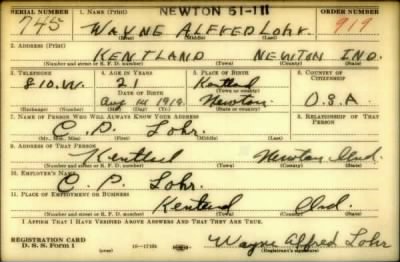 SERIAL NUMBER 1. NAME (Print) NEWTON 51-111 ORDER NUMBER
745 WAYNE ALFRED LOHR. 919
(First) (Middle) (Last)
2. ADDRESS (Print)
KENTLAND NEWTON IND.
(Number and street or R. F. D. number) (Town) (County) (State)
3. TELEPHONE 4. AGE IN YEARS 5. PLACE OF BIRTH 6. COUNTRY OF CITIZENSHIP
810.W. 21 Kentland
DATE OF BIRTH (Town)
Aug 14 1919. Newton U.S.A
(Exchange) (Number) (Mo.) (Day) (Yr.) (State or county)
7. NAME OF PERSON WHO WILL ALWAYS KNOW YOUR ADDRESS 8. RELATIONSHIP OF THAT PERSON
C. P. Lohr.
(Mr., Mrs., Miss) (First) (Middle) (Last)
9. ADDRESS OF THAT PERSON
Kentland Newton Ind.
(Number and street or R. F. D. number) (Town) (County) (State)
10. EMPLOYER'S NAME
C. P. Lohr.
11. PLACE OF EMPLOYMENT OR BUSINESS
Kentland Ind.
(Number and street or R. F. D. number) (Town) (County) (State)
I AFFIRM THAT I HAVE VERIFIED ABOVE ANSWERS AND THAT THEY ARE TRUE.
REGISTRATION CARD
D. S. S. Form 1 Wayne Alfred Lohr
(Registrant's signature)